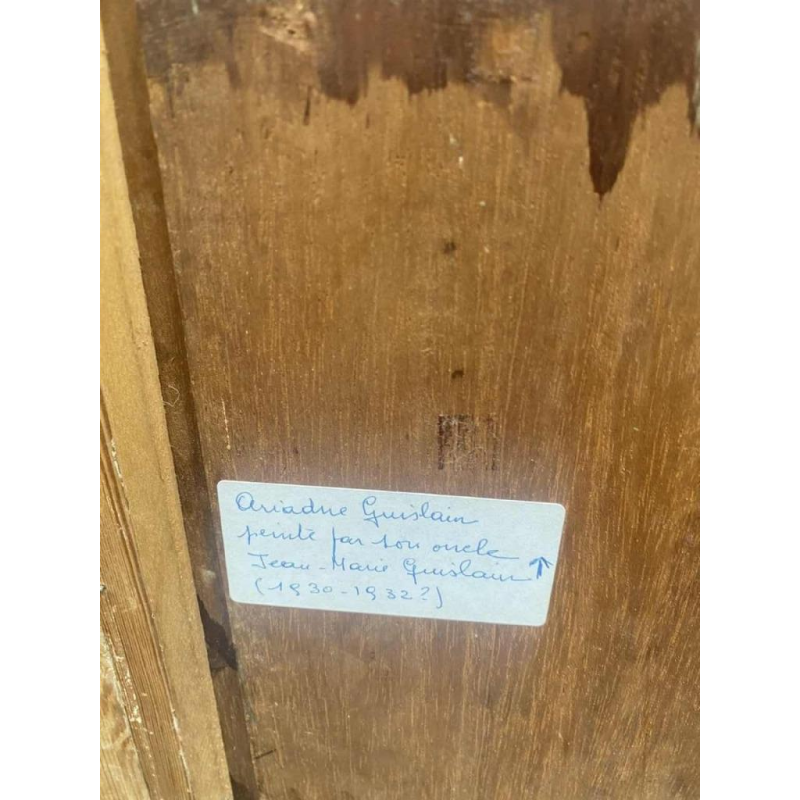 Ariadne Guislain
peinte par son oncle
Jean-Marie Guislain
(1930-1932?)